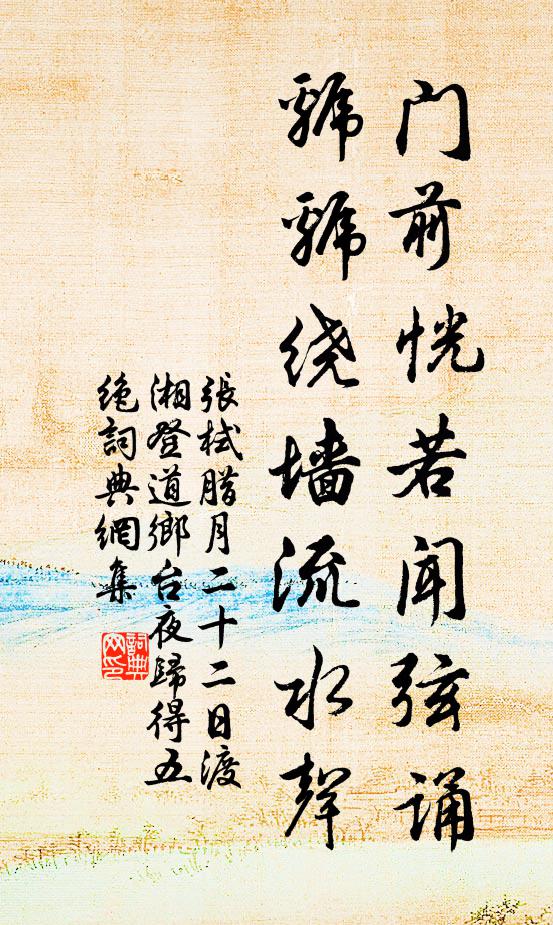 门前恍若闻弦诵
虢虢绕墙流水聲
張栻腊月二十二日渡
湘登道鄉台夜歸得五
绝詞典網集
詞典网印